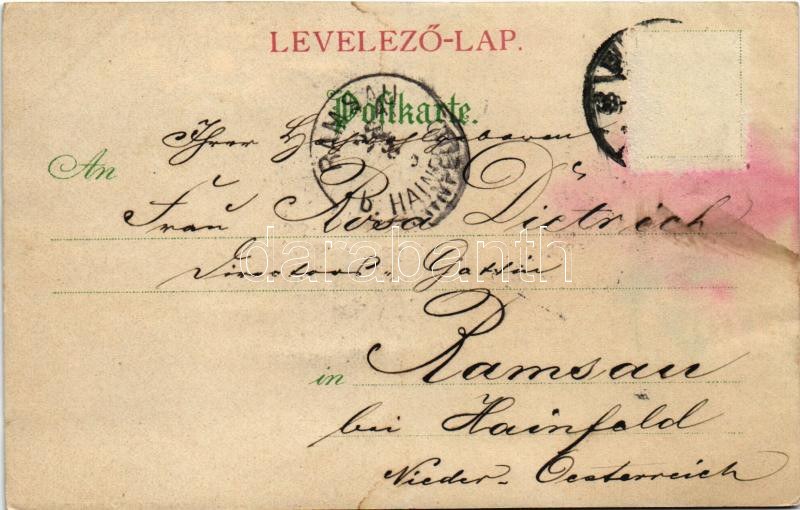 LEVELEZŐ-LAP.
Postkarte.
RAMSAU
b. HAINFELD
Ihrer Hochwohlgeboren
An
Frau Rosa Dietrich
Directors-Gattin
darabanth
in Ramsau
bei Hainfeld
Nieder-Oesterreich